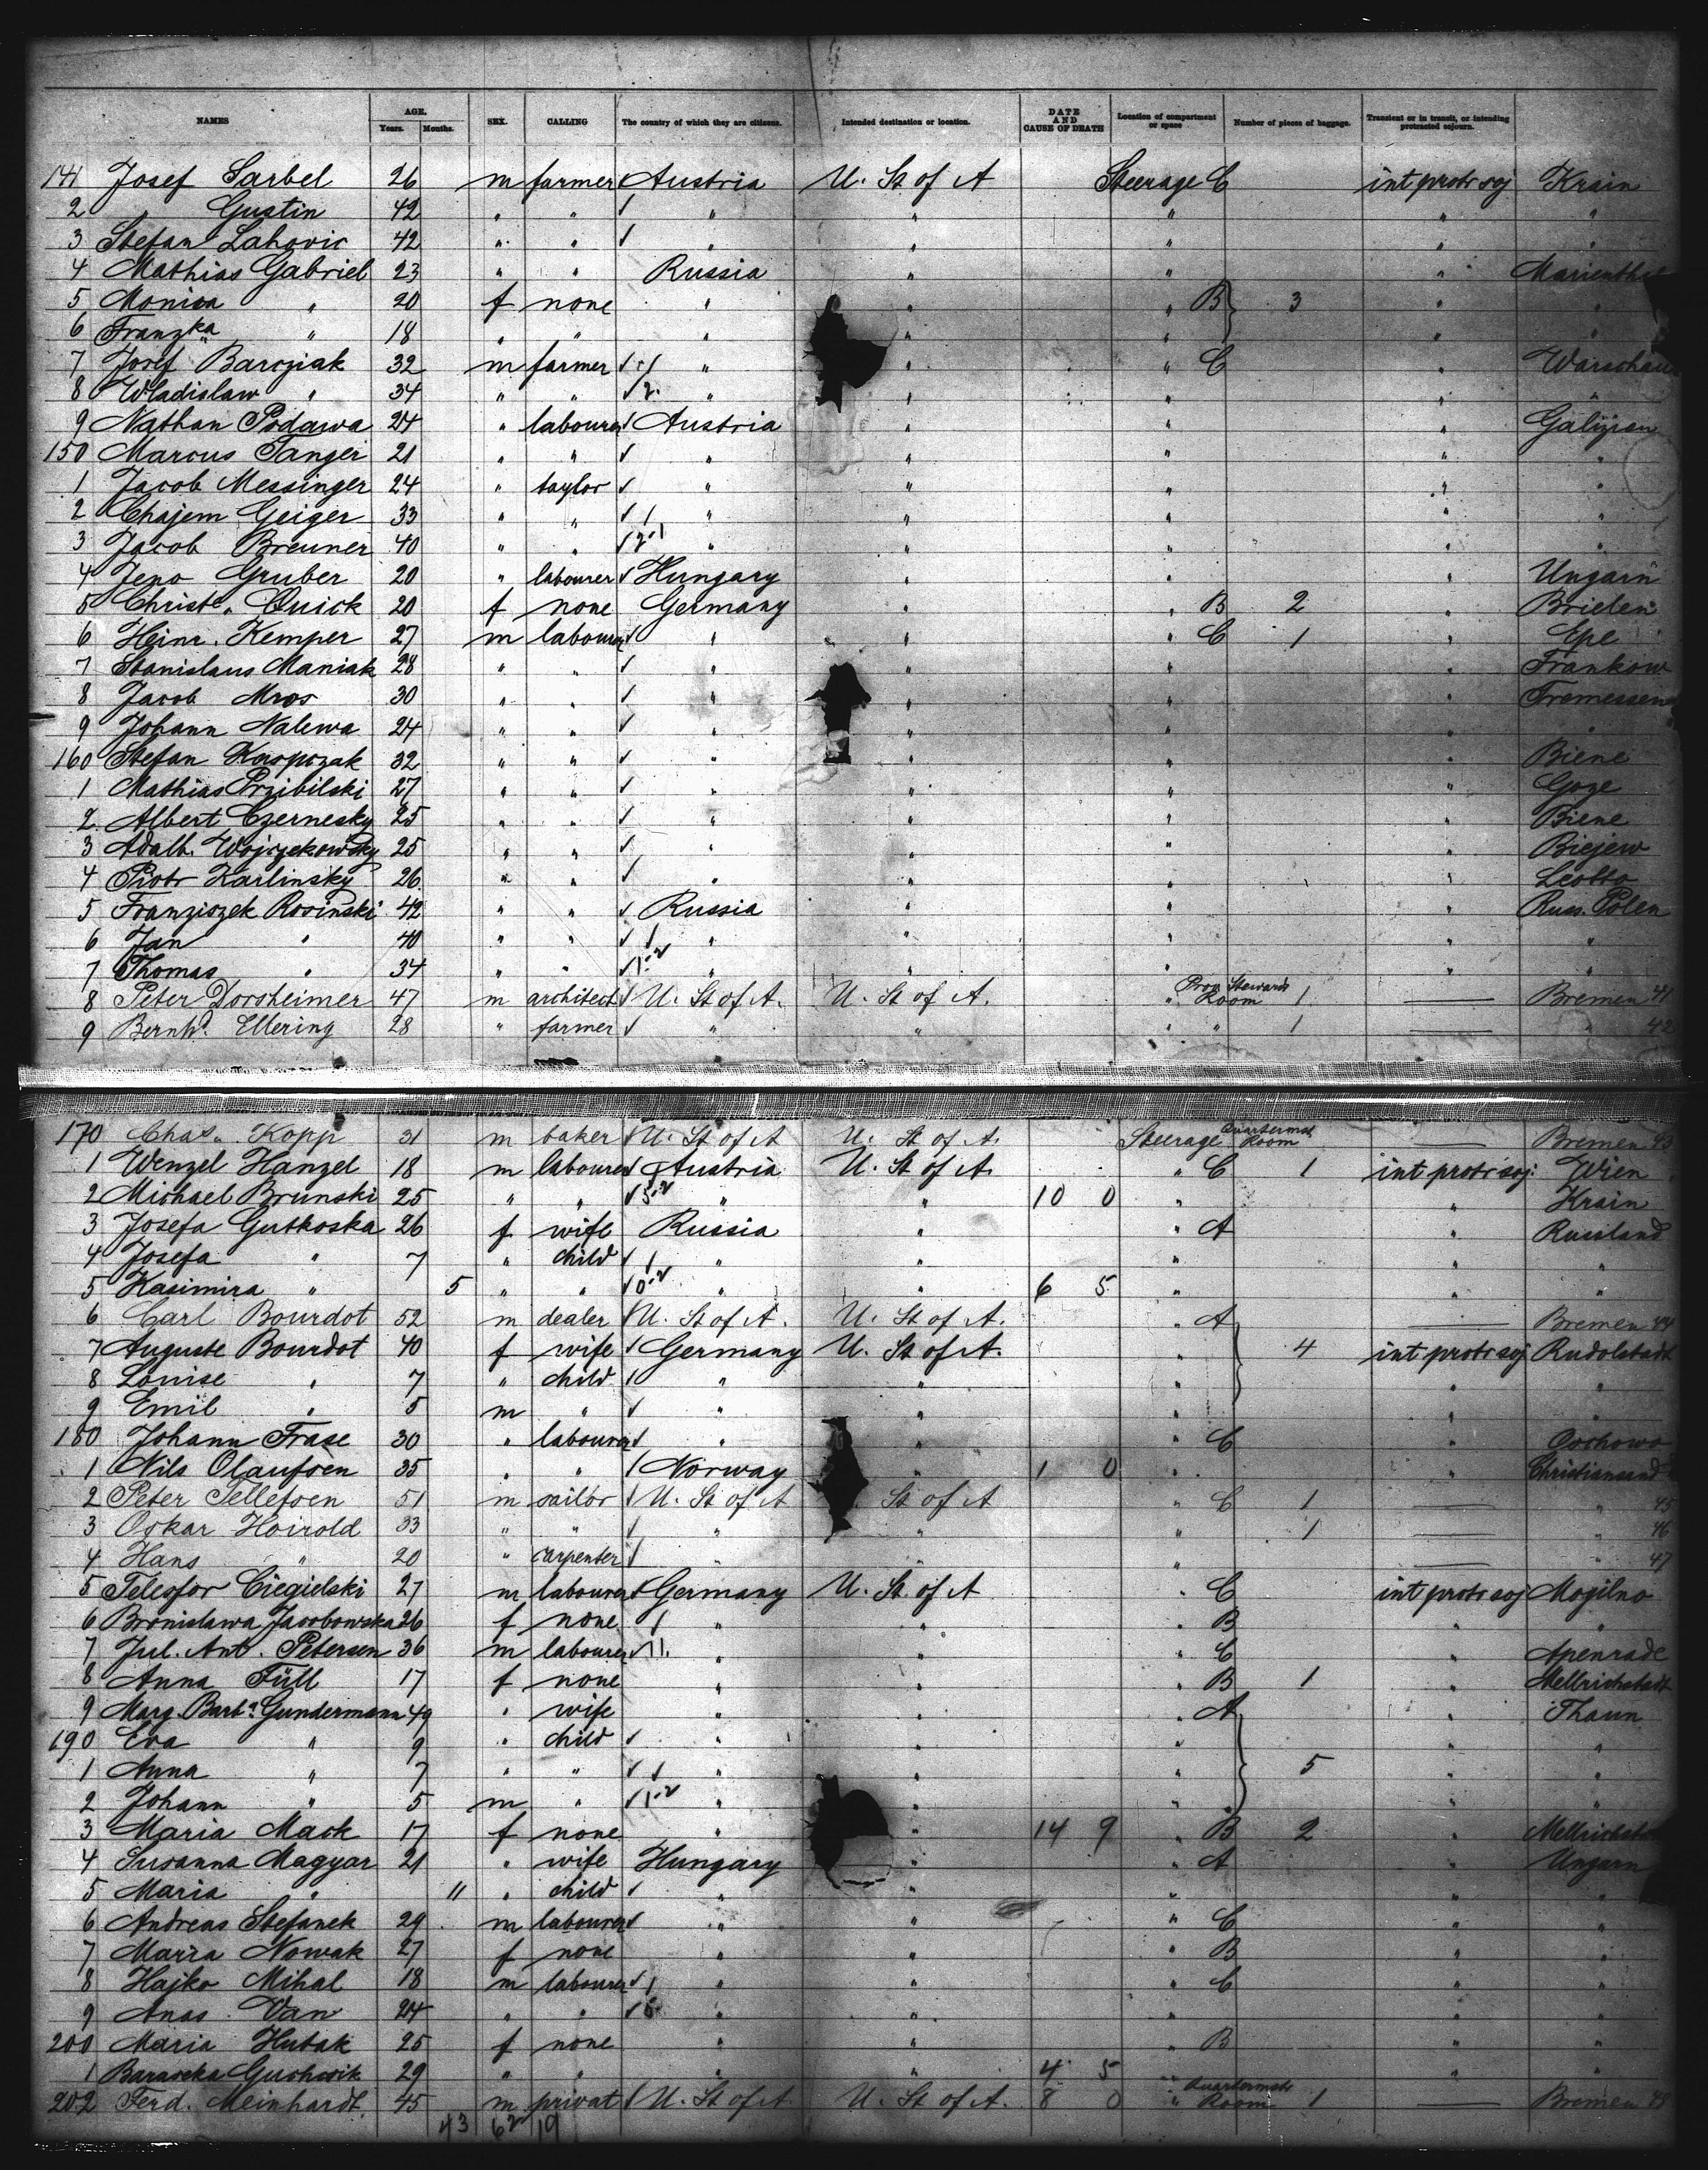 NAMES AGE. Years. Months. SEX. CALLING The country of which they are citizens. Intended destination or location. DATE AND CAUSE OF DEATH Location of compartment or space Number of pieces of baggage. Transient or in transit, or intending protracted sojourn.
141 Josef Sarbel 26 m farmer Austria U. St of A Steerage C int protr soj Krain
2 " Gustin 42 " " " " " " "
3 Stefan Lahovic 42 " " " " " " "
4 Mathias Gabriel 23 " " Russia " " "
5 Monica " 20 f none " " " B 3 " "
6 Franzka " 18 " " " " " " "
7 Josef Barcziak 32 m farmer " " " C " Warschau
8 Wladislaw " 34 " " " " " " "
9 Nathan Podawa 24 " labourer Austria " " " Galizien
150 Marcus Tanger 21 " " " " " " "
1 Jacob Messinger 24 " taylor " " " " "
2 Chajem Geiger 33 " " " " " " "
3 Jacob Breuner 40 " " " " " " "
4 Jeno Gruber 20 " labourer Hungary " " " Ungarn
5 Christe. Quick 20 f none Germany " " B 2 " Brielen
6 Heinr. Kemper 27 m labourer " " " C 1 " Epe
7 Stanislaus Maniak 28 " " " " " " Frankow
8 Jacob Mros 30 " " " " " " Tremessen
9 Johann Nalewa 24 " " " " " " "
160 Stefan Kaspczak 32 " " " " " " Biene
1 Mathias Przibilski 27 " " " " " " Goze
2 Albert Czernesky 25 " " " " " " Biene
3 Adalb. Wojczekowsky 25 " " " " " " Biejew
4 Piotr Karlinsky 26 " " " " " "
5 Franziszek Rosinski 42 " " Russia " " " Russ. Polen
6 Jan " 40 " " " " " " "
7 Thomas " 34 " " " " " " "
8 Peter Dorsheimer 47 m architect U. St of A. U. St of A. " Prov Stewards Room 1 — Bremen 41
9 Bernhd. Ellering 28 " farmer " " " " 1 — " 42
170 Chas. Kopp 31 m baker U. St of A U. St of A. Steerage Quartermst. Room — Bremen 43
1 Wenzel Hanzel 18 m labourer Austria U. St of A. " C 1 int protr soj. Wien
2 Michael Brunski 25 " " " " 10 0 " " Krain
3 Josefa Gutkoska 26 f wife Russia " " A " Russland
4 Josefa " 7 " child " " " " "
5 Kasimira " 5 " " " " 6 5 " " "
6 Carl Bourdot 52 m dealer U. St of A. U. St of A. " A — Bremen 44
7 Auguste Bourdot 40 f wife Germany U. St of A. " 4 int protr soj Rudolstadt
8 Louise " 7 " child " " " " "
9 Emil " 5 m " " " " " "
180 Johann Frase 30 " labourer " " " C "
1 Nils Olaufsen 35 " " Norway " 1 0 " " Christiansand
2 Peter Tellefsen 51 m sailor U. St of A St of A " C 1 — " 45
3 Oskar Hoirold 33 " " " " " 1 — " 46
4 Hans " 20 " carpenter " " " — " 47
5 Telesfor Ciegielski 27 m labourer Germany U. St. of A " C int protr soj Mogilno
6 Bronislawa Jacobowska 26 f none " " " B " "
7 Jul. Ant. Petersen 36 m labourer " " " C " Apenrade
8 Anna Füll 17 f none " " " B 1 " Mellrichstadt
9 Marg. Barba. Gundermann 49 " wife " " " A " Thann
190 Eva " 9 " child " " " " "
1 Anna " 7 " " " " " 5 " "
2 Johann " 5 m " " " " " "
3 Maria Mack 17 f none " " 14 9 " B 2 "
4 Susanna Magyar 21 " wife Hungary " " A " Ungarn
5 Maria " 11 " child " " " " "
6 Andreas Stefanek 29 m labourer " " " C " "
7 Maria Nowak 27 f none " " " B " "
8 Hajko Mihal 18 m labourer " " " C " "
9 Anas Van 24 " " " " " " "
200 Maria Hubak 25 f none " " " B " "
1 29 " " " " 4 5 " " "
202 Ferd. Meinhardt 45 m privat U. St of A. U. St of A. 8 0 " Quartermstr. Room 1 — Bremen 48
43 62 19